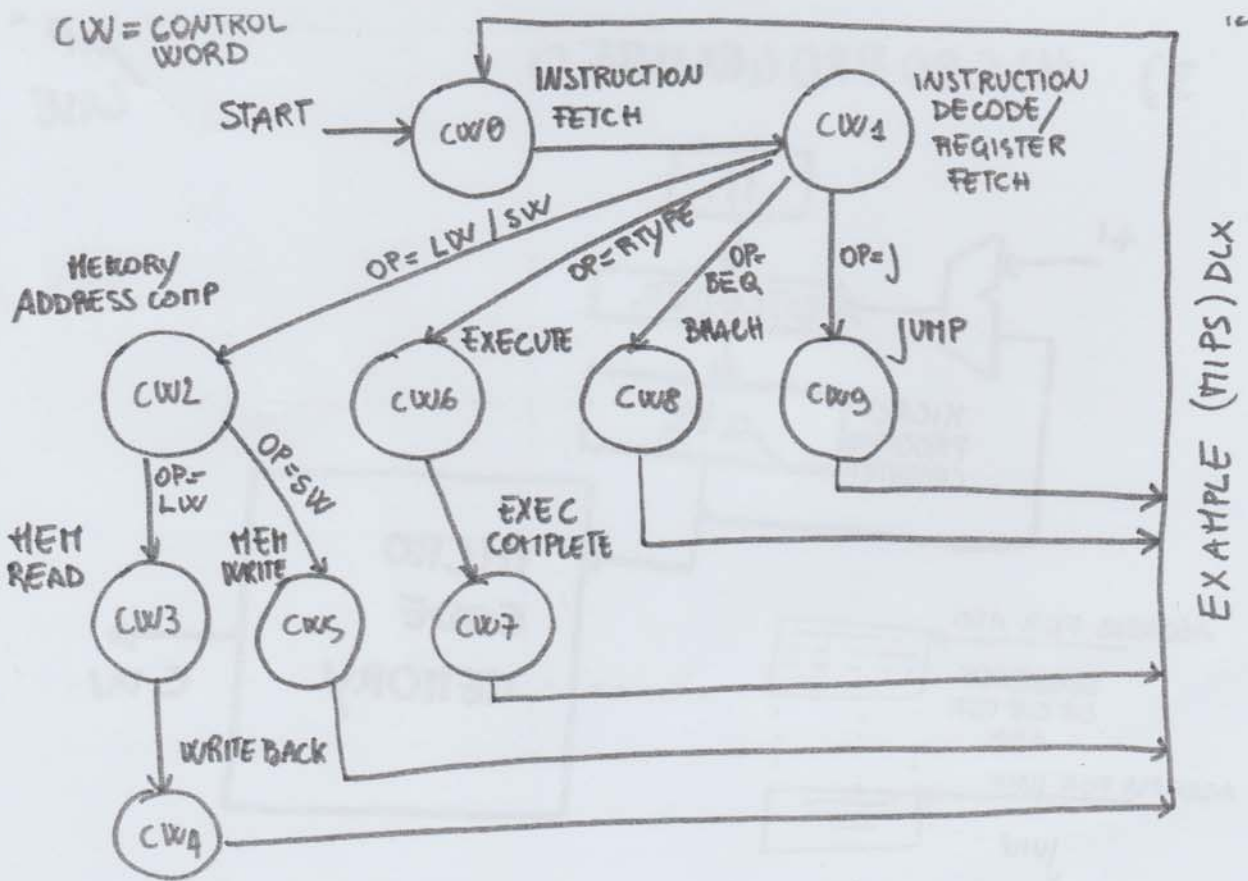 CW = CONTROL
WORD
START
CW0
INSTRUCTION
FETCH
CW1
INSTRUCTION
DECODE/
REGISTER
FETCH
OP=LW/SW
OP=RTYPE
OP=
BEQ
OP=J
MEMORY/
ADDRESS COMP
EXECUTE
BRACH
JUMP
CW2
CW6
CW8
CW9
OP=
LW
OP=SW
MEM
READ
MEM
WRITE
EXEC
COMPLETE
CW3
CW5
CW7
WRITE BACK
CW4
EXAMPLE (MIPS) DLX